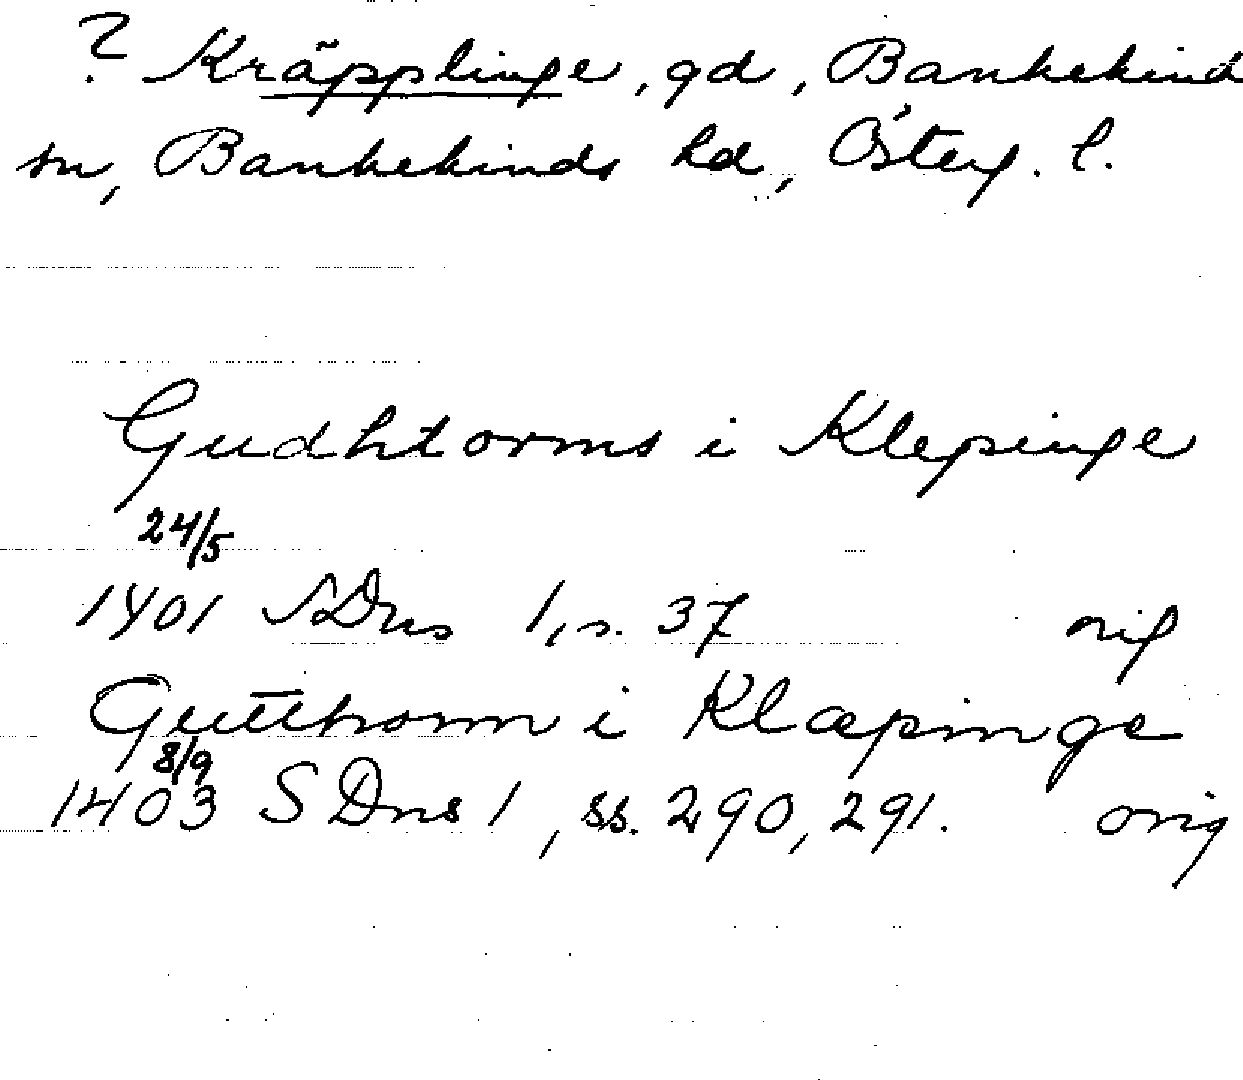 ? Kräpplinge, gd, Bankekind
sn, Bankekinds hd, Österg. l.
Gudhtorms i Klepinge
24/5
1401 SDns 1, s. 37 orig
Gutthorm i Klæpinge
8/9
1403 SDns 1, ss. 290, 291. orig